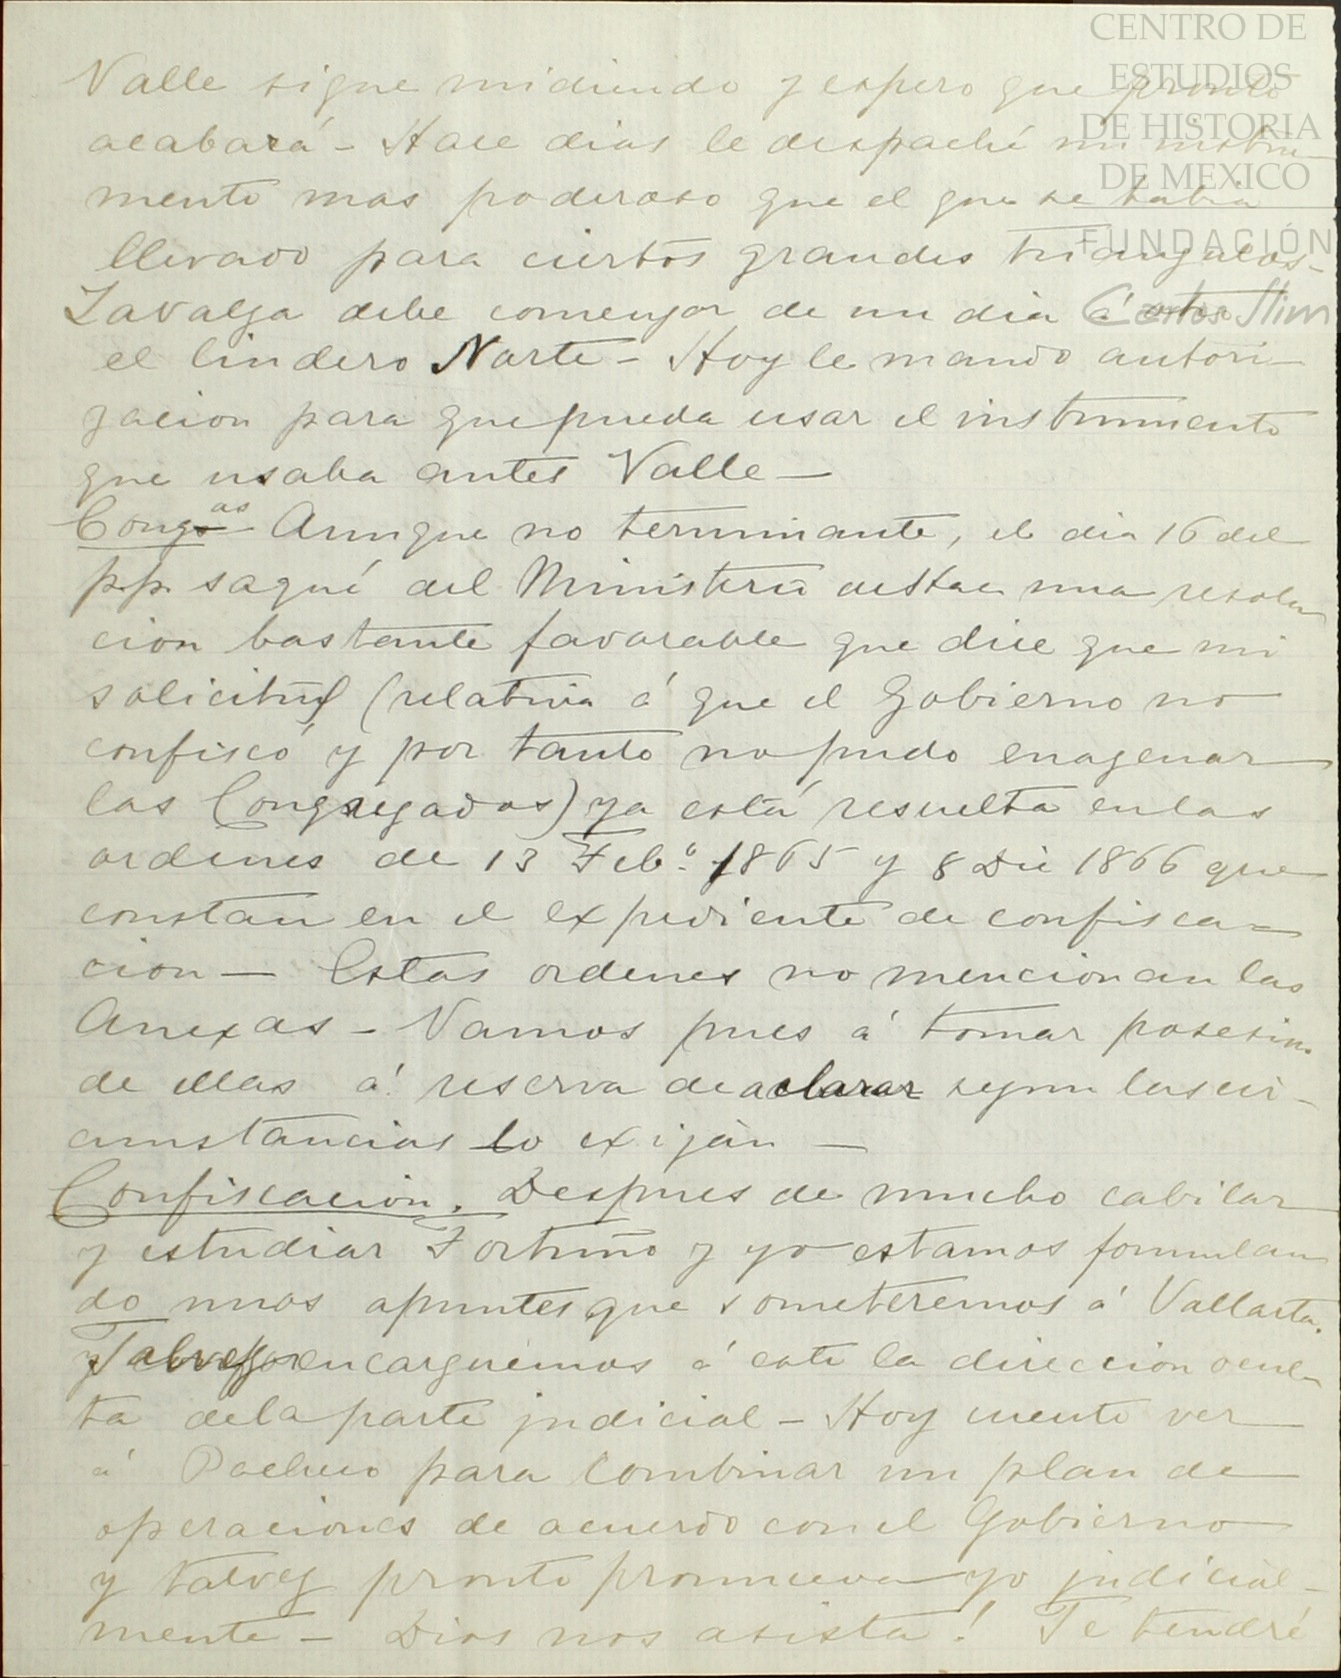 CENTRO DE
ESTUDIOS
DE HISTORIA
DE MEXICO
FUNDACIÓN
Carlos Slim
Valle sigue midiendo y espero que pronto
acabará - Hace dias le despaché un instru-
mento mas poderoso que el que se habia
llevado para ciertos grandes triangulos -
Zavalza debe comenzar de un dia á otro
el lindero Norte - Hoy le mando autori-
zacion para que pueda usar el instrumento
que usaba antes Valle -
Congas Aunque no terminante, el dia 16 del
p.p. saqué del Ministerio una resolu
cion bastante favorable que dice que mi
solicitud (relativa á que el Gobierno no
confiscó y por tanto no pudo enagenar
las Congregadas) ya está resuelta en las
ordenes de 13 Feb.º 1865 y 8 Dic 1866 que
constan en el expediente de confisca-
cion - Estas ordenes no mencionan las
Anexas - Vamos pues á tomar posesion
de ellas á reserva de aclarar segun las cir-
cunstancias lo exijan -
Confiscacion. Despues de mucho cabilar
y estudiar Fortuño y yo estamos formulan
do unos apuntes que someteremos á Vallarta.
encarguemos á este la direccion ocul
ta de la parte judicial - Hoy cuento ver
á Pacheco para combinar un plan de
operaciones de acuerdo con el Gobierno
y talvez pronto promueva yo judicial-
mente - Dios nos asista! Te tendré